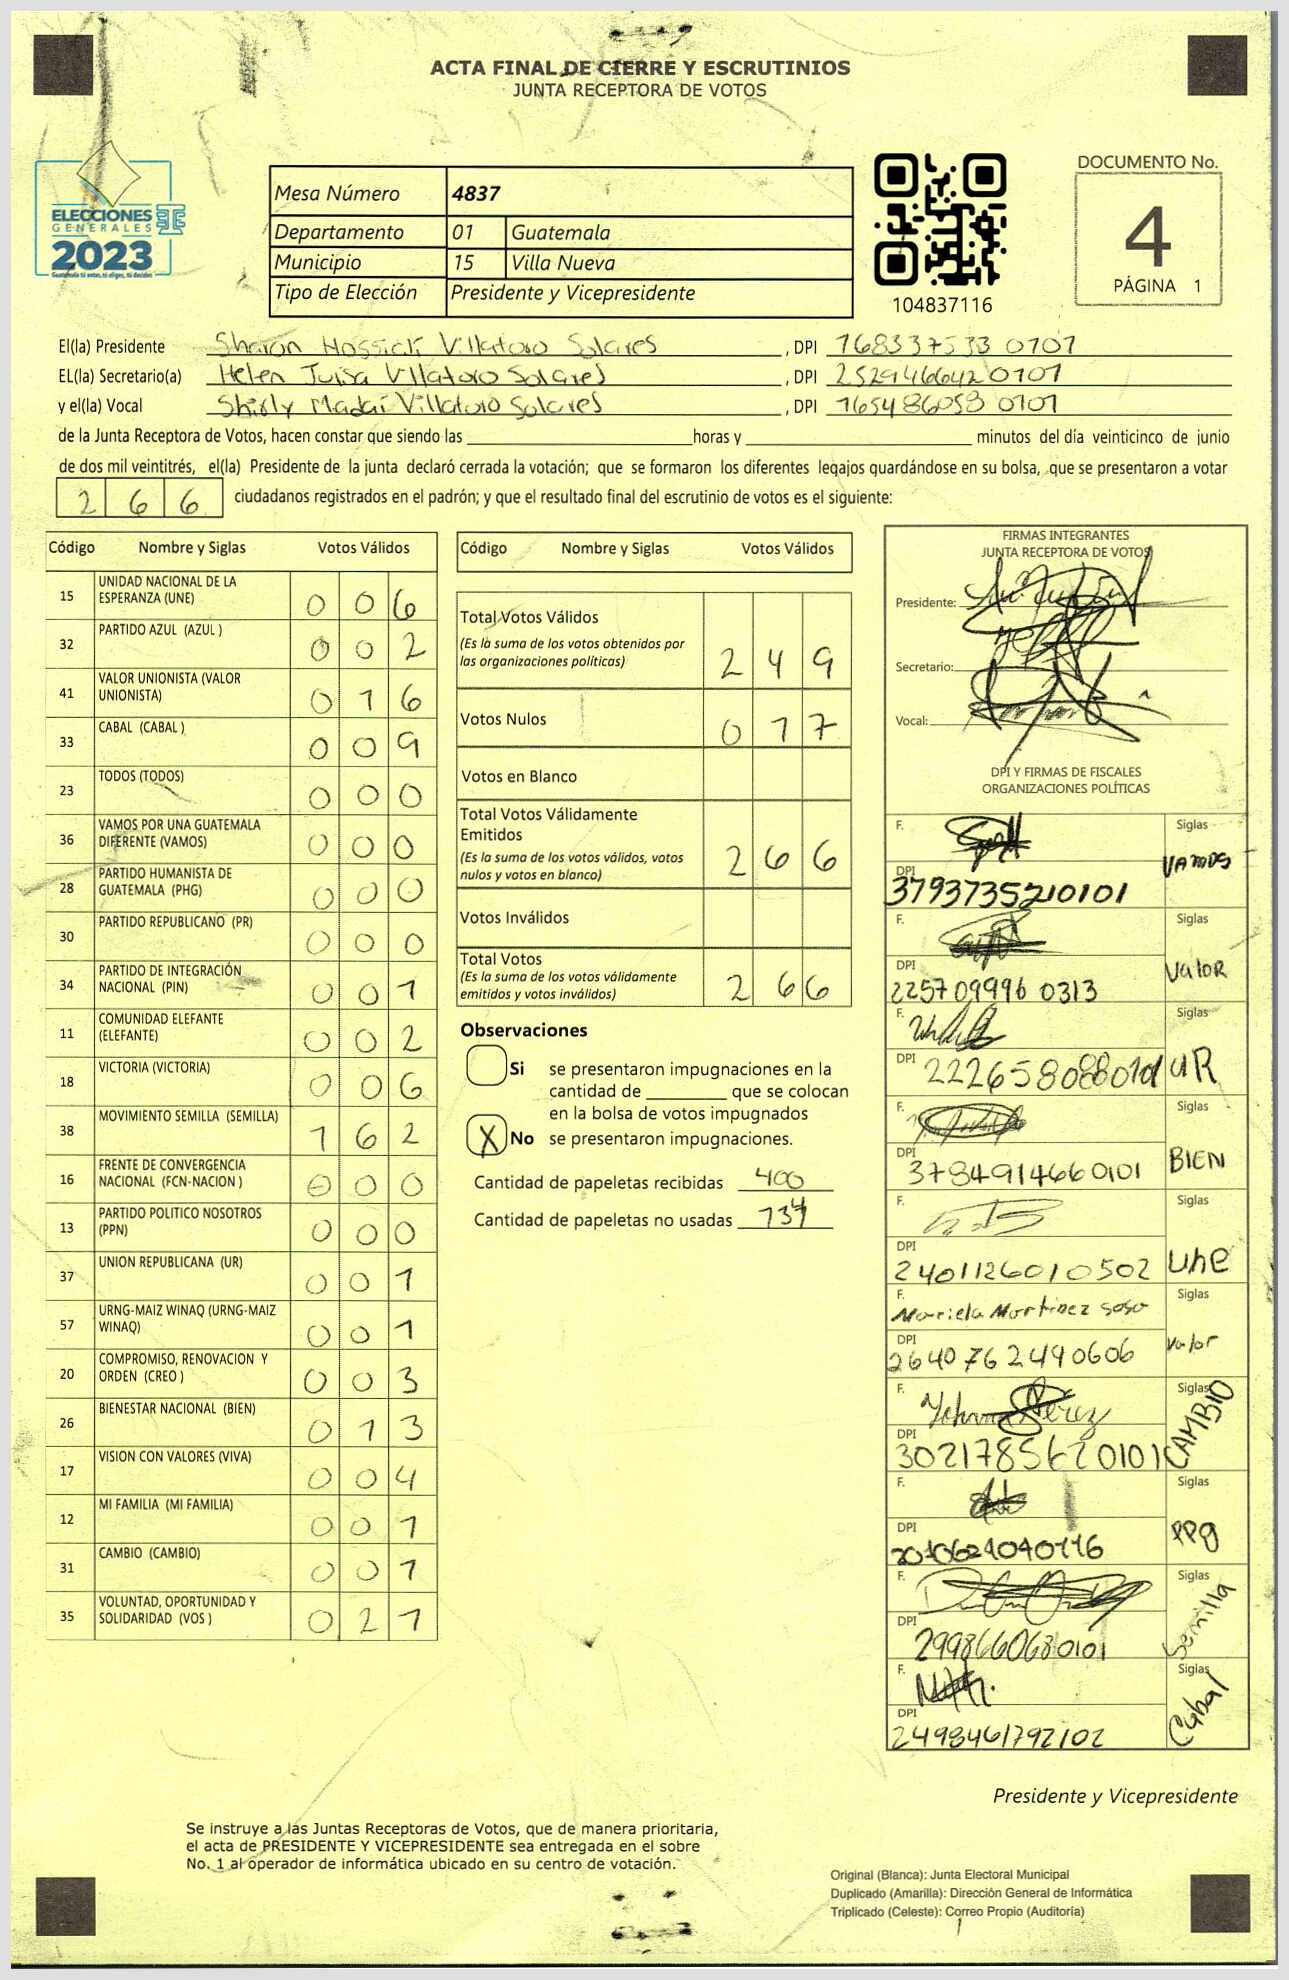 ACTA FINAL DE CIERRE Y ESCRUTINIOS
JUNTA RECEPTORA DE VOTOS
ELECCIONES
GENERALES
2023
Guatemala tú votas, tú eliges, tú decides
Mesa Número 4837
Departamento 01 Guatemala
Municipio 15 Villa Nueva
Tipo de Elección Presidente y Vicepresidente
104837116
DOCUMENTO No.
4
PÁGINA 1
El(la) Presidente Sharon Villatoro Solares , DPI 168337533 0101
EL(la) Secretario(a) Helen Villatoro Solares , DPI 252946642 0101
y el(la) Vocal Shirly Madaí Villatoro Solares , DPI 165486058 0101
de la Junta Receptora de Votos, hacen constar que siendo las horas y minutos del día veinticinco de junio
de dos mil veintitrés, el(la) Presidente de la junta declaró cerrada la votación; que se formaron los diferentes legajos guardándose en su bolsa, que se presentaron a votar
266 ciudadanos registrados en el padrón; y que el resultado final del escrutinio de votos es el siguiente:
Código Nombre y Siglas Votos Válidos
15 UNIDAD NACIONAL DE LA ESPERANZA (UNE) 0 0 6
32 PARTIDO AZUL (AZUL ) 0 0 2
41 VALOR UNIONISTA (VALOR UNIONISTA) 0 1 6
33 CABAL (CABAL ) 0 0 9
23 TODOS (TODOS) 0 0 0
36 VAMOS POR UNA GUATEMALA DIFERENTE (VAMOS) 0 0 0
28 PARTIDO HUMANISTA DE GUATEMALA (PHG) 0 0 0
30 PARTIDO REPUBLICANO (PR) 0 0 0
34 PARTIDO DE INTEGRACIÓN NACIONAL (PIN) 0 0 1
11 COMUNIDAD ELEFANTE (ELEFANTE) 0 0 2
18 VICTORIA (VICTORIA) 0 0 6
38 MOVIMIENTO SEMILLA (SEMILLA) 1 6 2
16 FRENTE DE CONVERGENCIA NACIONAL (FCN-NACION ) 0 0 0
13 PARTIDO POLITICO NOSOTROS (PPN) 0 0 0
37 UNION REPUBLICANA (UR) 0 0 1
57 URNG-MAIZ WINAQ (URNG-MAIZ WINAQ) 0 0 1
20 COMPROMISO, RENOVACION Y ORDEN (CREO ) 0 0 3
26 BIENESTAR NACIONAL (BIEN) 0 1 3
17 VISION CON VALORES (VIVA) 0 0 4
12 MI FAMILIA (MI FAMILIA) 0 0 1
31 CAMBIO (CAMBIO) 0 0 1
35 VOLUNTAD, OPORTUNIDAD Y SOLIDARIDAD (VOS ) 0 2 1
Código Nombre y Siglas Votos Válidos
Total Votos Válidos
(Es la suma de los votos obtenidos por
las organizaciones políticas) 2 4 9
Votos Nulos 0 1 7
Votos en Blanco
Total Votos Válidamente
Emitidos
(Es la suma de los votos válidos, votos
nulos y votos en blanco) 2 6 6
Votos Inválidos
Total Votos
(Es la suma de los votos válidamente
emitidos y votos inválidos) 2 6 6
Observaciones
Si se presentaron impugnaciones en la
cantidad de que se colocan
en la bolsa de votos impugnados
X No se presentaron impugnaciones.
Cantidad de papeletas recibidas 400
Cantidad de papeletas no usadas 134
FIRMAS INTEGRANTES
JUNTA RECEPTORA DE VOTOS
Presidente:
Secretario:
Vocal:
DPI Y FIRMAS DE FISCALES
ORGANIZACIONES POLÍTICAS
F. Siglas
VAMOS
DPI
3793735210101
F. Siglas
Valor
DPI
225709996 0313
F. Siglas
UR
DPI
F. Siglas
BIEN
DPI
3784914660101
F. Siglas
une
DPI
2401126010502
F. Siglas
Mariela Martinez Soso
Valor
DPI
2640762490606
F. Siglas
CAMBIO
DPI
F. Siglas
PPg
DPI
F. Siglas
Semilla
DPI
2998660680101
F. Siglas
Cabal
DPI
2498461792102
Presidente y Vicepresidente
Se instruye a las Juntas Receptoras de Votos, que de manera prioritaria,
el acta de PRESIDENTE Y VICEPRESIDENTE sea entregada en el sobre
No. 1 al operador de informática ubicado en su centro de votación.
Original (Blanca): Junta Electoral Municipal
Duplicado (Amarilla): Dirección General de Informática
Triplicado (Celeste): Correo Propio (Auditoría)